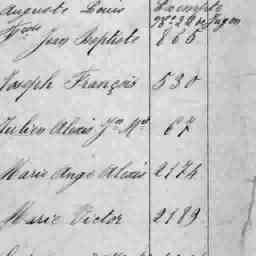 Auguste Louis Exempté
Jean Baptiste 866
Joseph François 530
Julien Alexis Jn Mie 67
Marie Ange Alexis 2174
Marie Victor 2189